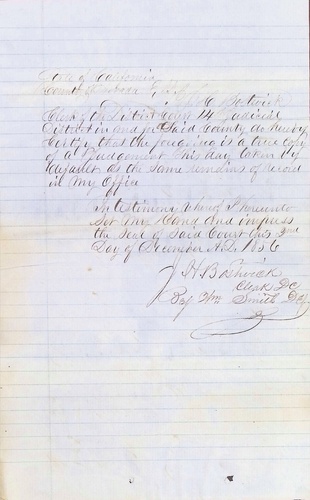 State of California
County of Nevada } SS I J H Bostwick
Clerk of the District Court 14 Judicial
District in and for Said County do hereby
Certify that the foregoing is a true copy
of a Judgement this day taken by
default as the same remains of record
in my Office
In testimony whereof I hereunto
Set my Hand and impress
the Seal of Said Court this 2nd
Day of December A.D. 1856
J H Bostwick
Clerk DC
By Wm Smith DC